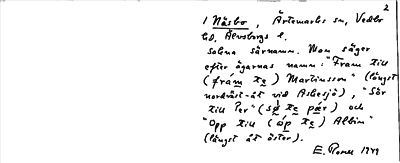 2
I Näsbo, Ärtemarks sn, Vedbo
hd, Älvsborgs l.
sakna särnamn. Man säger
efter ägarnas namn: "Fram till
(frám te) Martinsson" (längst
nordväst-åt vid Askesjö), "Sör
till Per" (sø te pær) och
"Opp till (óp te) Albin"
(längst åt öster).
E. 1949